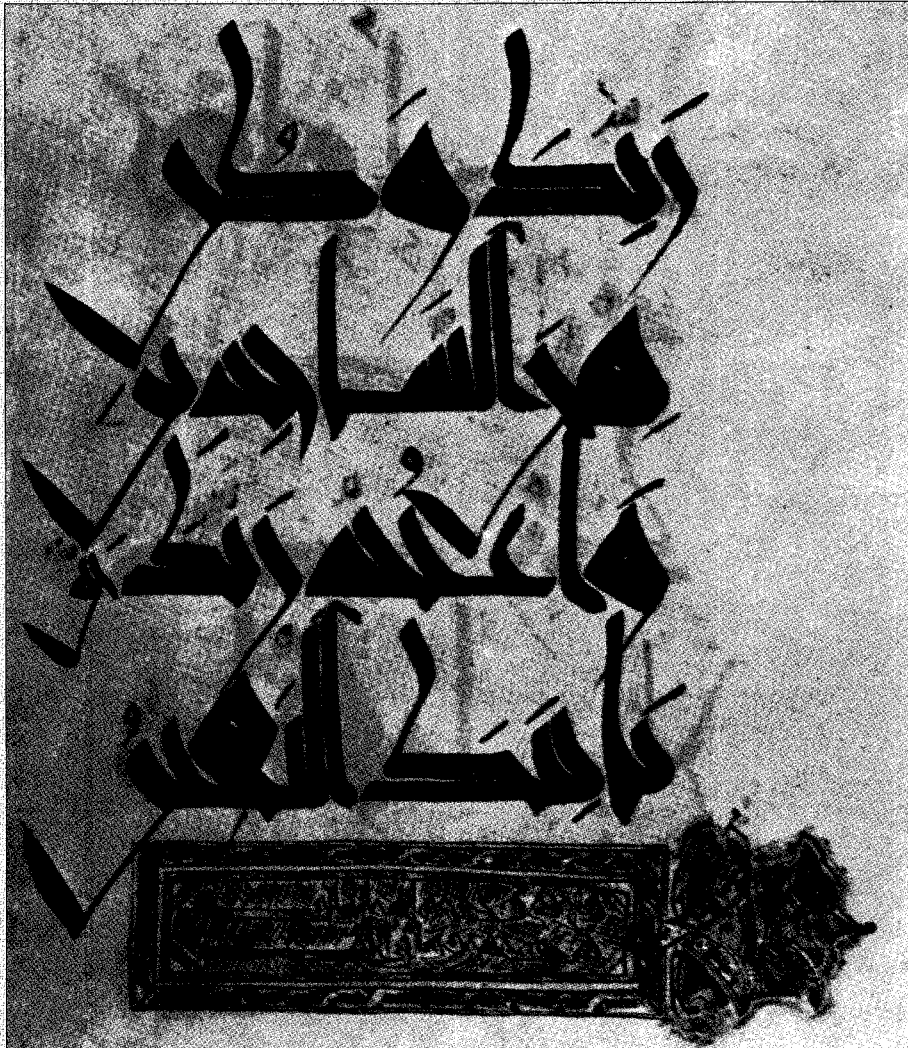 رَبِّكَ وَكُن
مِنَ السَّاجِدِينَ
وَاعْبُدْ رَبَّكَ حَتَّى
يَأْتِيَكَ الْيَقِينُ